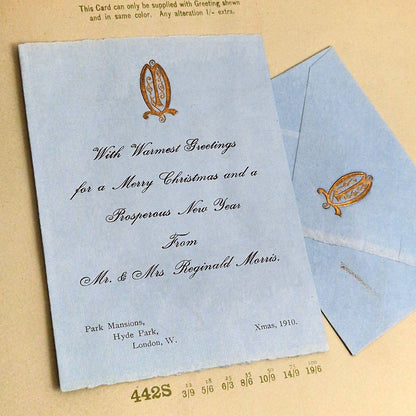 This Card can only be supplied with Greeting shewn
and in same color. Any alteration 1/- extra.
With Warmest Greetings
for a Merry Christmas and a
Prosperous New Year
From
Mr. & Mrs. Reginald Morris.
Park Mansions,
Hyde Park,
London, W.
Xmas, 1910.
442S
3/9 5/6 6/3 8/6 10/9 14/9 19/6